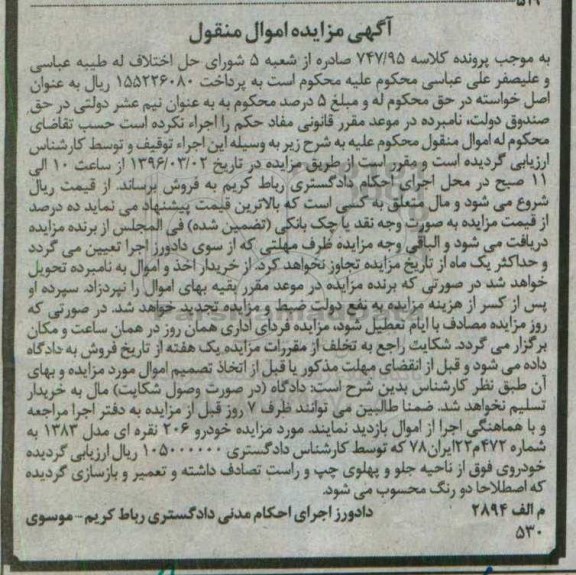 ۵۲۹
آگهی مزایده اموال منقول
به موجب پرونده کلاسه ۷۴۷/۹۵ صادره از شعبه ۵ شورای حل اختلاف له طیبه عباسی
و علیصفر علی عباسی محکوم علیه محکوم است به پرداخت ۱۵۵۲۲۶۰۸۰ ریال به عنوان
اصل خواسته در حق محکوم له و مبلغ ۵ درصد محکوم به به عنوان نیم عشر دولتی در حق
صندوق دولت، نامبرده در موعد مقرر قانونی مفاد حکم را اجراء نکرده است حسب تقاضای
محکوم له اموال منقول محکوم علیه به شرح زیر به وسیله این اجراء توقیف و توسط کارشناس
ارزیابی گردیده است و مقرر است از طریق مزایده در تاریخ ۱۳۹۶/۰۳/۰۲ از ساعت ۱۰ الی
۱۱ صبح در محل اجرای احکام دادگستری رباط کریم به فروش برساند. از قیمت ریال
شروع می شود و مال متعلق به کسی است که بالاترین قیمت پیشنهاد می نماید ده درصد
از قیمت مزایده به صورت وجه نقد یا چک بانکی (تضمین شده) فی المجلس از برنده مزایده
دریافت می شود و الباقی وجه مزایده ظرف مهلتی که از سوی دادورز اجرا تعیین می گردد
و حداکثر یک ماه از تاریخ مزایده تجاوز نخواهد کرد. از خریدار اخذ و اموال به نامبرده تحویل
خواهد شد در صورتی که برنده مزایده در موعد مقرر بقیه بهای اموال را نپردازد. سپرده او
پس از کسر از هزینه مزایده به نفع دولت ضبط و مزایده تجدید خواهد شد. در صورتی که
روز مزایده مصادف با ایام تعطیل شود، مزایده فردای اداری همان روز در همان ساعت و مکان
برگزار می گردد. شکایت راجع به تخلف از مقررات مزایده یک هفته از تاریخ فروش به دادگاه
داده می شود و قبل از انقضای مهلت مذکور یا قبل از اتخاذ تصمیم اموال مورد مزایده و بهای
آن طبق نظر کارشناس بدین شرح است: دادگاه (در صورت وصول شکایت) مال به خریدار
تسلیم نخواهد شد. ضمنا طالبین می توانند ظرف ۷ روز قبل از مزایده به دفتر اجرا مراجعه
و با هماهنگی اجرا از اموال بازدید نمایند. مورد مزایده خودرو ۲۰۶ نقره ای مدل ۱۳۸۳ به
شماره ۴۷۲م۲۲ایران۷۸ که توسط کارشناس دادگستری ۱۰۵۰۰۰۰۰۰ ریال ارزیابی گردیده
خودروی فوق از ناحیه جلو و پهلوی چپ و راست تصادف داشته و تعمیر و بازسازی گردیده
که اصطلاحا دو رنگ محسوب می شود.
م الف ۲۸۹۴ دادورز اجرای احکام مدنی دادگستری رباط کریم-موسوی
۵۳۰